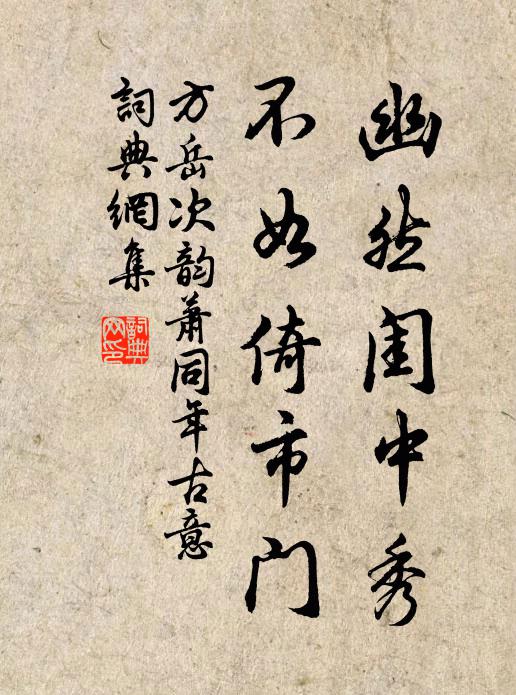 幽然闺中秀
不如倚市门
方岳次韵萧同年古意
詞典網集
詞典網印